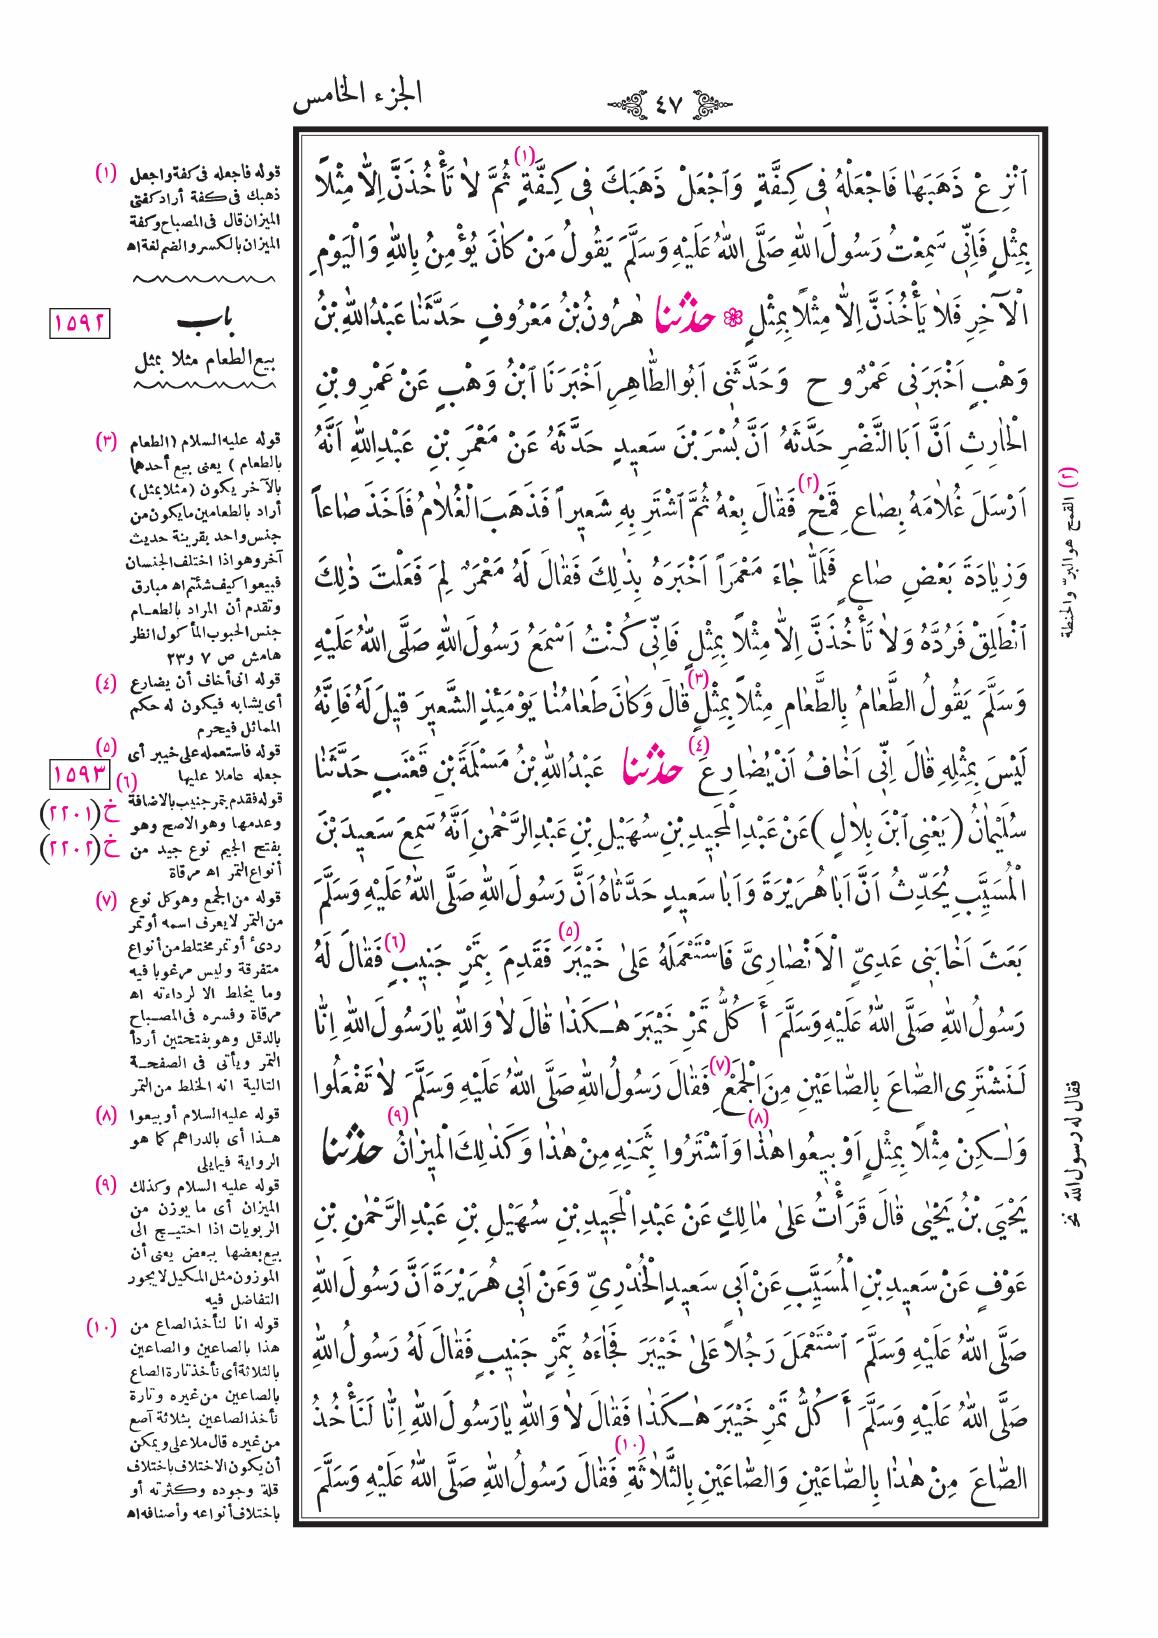 الجزء الخامس
٤٧
اَنْزِعْ ذَهَبَهَا فَاجْعَلْهُ فِي كِفَّةٍ وَاجْعَلْ ذَهَبَكَ فِي كِفَّةٍ (١) ثُمَّ لَا تَأْخُذَنَّ اِلَّا مِثْلاً
بِمِثْلٍ فَاِنِّي سَمِعْتُ رَسُولَ اللهِ صَلَّى اللهُ عَلَيْهِ وَسَلَّمَ يَقُولُ مَنْ كَانَ يُؤْمِنُ بِاللهِ وَالْيَوْمِ
الْآخِرِ فَلَا يَأْخُذَنَّ اِلَّا مِثْلاً بِمِثْلٍ ❁ حَدَّثَنَا هٰرُونُ بْنُ مَعْرُوفٍ حَدَّثَنَا عَبْدُ اللهِ بْنُ
وَهْبٍ اَخْبَرَنِي عَمْرٌو ح وَحَدَّثَنِي اَبُو الطَّاهِرِ اَخْبَرَنَا ابْنُ وَهْبٍ عَنْ عَمْرِو بْنِ
الْحَارِثِ اَنَّ اَبَا النَّضْرِ حَدَّثَهُ اَنَّ بُسْرَ بْنَ سَعِيدٍ حَدَّثَهُ عَنْ مَعْمَرِ بْنِ عَبْدِ اللهِ اَنَّهُ
اَرْسَلَ غُلَامَهُ بِصَاعِ قَمْحٍ (٢) فَقَالَ بِعْهُ ثُمَّ اشْتَرِ بِهِ شَعِيراً فَذَهَبَ الْغُلَامُ فَاَخَذَ صَاعاً
وَزِيَادَةَ بَعْضِ صَاعٍ فَلَمَّا جَاءَ مَعْمَراً اَخْبَرَهُ بِذٰلِكَ فَقَالَ لَهُ مَعْمَرٌ لِمَ فَعَلْتَ ذٰلِكَ
انْطَلِقْ فَرُدَّهُ وَلَا تَأْخُذَنَّ اِلَّا مِثْلاً بِمِثْلٍ فَاِنِّي كُنْتُ اَسْمَعُ رَسُولَ اللهِ صَلَّى اللهُ عَلَيْهِ
وَسَلَّمَ يَقُولُ الطَّعَامُ بِالطَّعَامِ مِثْلاً بِمِثْلٍ (٣) قَالَ وَكَانَ طَعَامُنَا يَوْمَئِذٍ الشَّعِيرَ قِيلَ لَهُ فَاِنَّهُ
لَيْسَ بِمِثْلِهِ قَالَ اِنِّي اَخَافُ اَنْ يُضَارِعَ (٤) حَدَّثَنَا عَبْدُ اللهِ بْنُ مَسْلَمَةَ بْنِ قَعْنَبٍ حَدَّثَنَا
سُلَيْمَانُ (يَعْنِي ابْنَ بِلَالٍ) عَنْ عَبْدِ الْمَجِيدِ بْنِ سُهَيْلِ بْنِ عَبْدِ الرَّحْمٰنِ اَنَّهُ سَمِعَ سَعِيدَ بْنَ
الْمُسَيَّبِ يُحَدِّثُ اَنَّ اَبَا هُرَيْرَةَ وَاَبَا سَعِيدٍ حَدَّثَاهُ اَنَّ رَسُولَ اللهِ صَلَّى اللهُ عَلَيْهِ وَسَلَّمَ
بَعَثَ اَخَا بَنِي عَدِيٍّ الْاَنْصَارِيَّ فَاسْتَعْمَلَهُ عَلَى خَيْبَرَ (٥) فَقَدِمَ بِتَمْرٍ جَنِيبٍ (٦) فَقَالَ لَهُ
رَسُولُ اللهِ صَلَّى اللهُ عَلَيْهِ وَسَلَّمَ أَكُلُّ تَمْرِ خَيْبَرَ هٰكَذَا قَالَ لَا وَاللهِ يَا رَسُولَ اللهِ اِنَّا
لَنَشْتَرِي الصَّاعَ بِالصَّاعَيْنِ مِنَ الْجَمْعِ (٧) فَقَالَ رَسُولُ اللهِ صَلَّى اللهُ عَلَيْهِ وَسَلَّمَ لَا تَفْعَلُوا
وَلٰكِنْ مِثْلاً بِمِثْلٍ اَوْ بِيعُوا هٰذَا (٨) وَاشْتَرُوا بِثَمَنِهِ مِنْ هٰذَا وَكَذٰلِكَ الْمِيزَانُ (٩) حَدَّثَنَا
يَحْيَى بْنُ يَحْيٰى قَالَ قَرَأْتُ عَلَى مَالِكٍ عَنْ عَبْدِ الْمَجِيدِ بْنِ سُهَيْلِ بْنِ عَبْدِ الرَّحْمٰنِ بْنِ
عَوْفٍ عَنْ سَعِيدِ بْنِ الْمُسَيَّبِ عَنْ اَبِي سَعِيدٍ الْخُدْرِيِّ وَعَنْ اَبِي هُرَيْرَةَ اَنَّ رَسُولَ اللهِ
صَلَّى اللهُ عَلَيْهِ وَسَلَّمَ اسْتَعْمَلَ رَجُلاً عَلَى خَيْبَرَ فَجَاءَهُ بِتَمْرٍ جَنِيبٍ فَقَالَ لَهُ رَسُولُ اللهِ
صَلَّى اللهُ عَلَيْهِ وَسَلَّمَ أَكُلُّ تَمْرِ خَيْبَرَ هٰكَذَا فَقَالَ لَا وَاللهِ يَا رَسُولَ اللهِ اِنَّا لَنَأْخُذُ
الصَّاعَ مِنْ هٰذَا بِالصَّاعَيْنِ وَالصَّاعَيْنِ بِالثَّلَاثَةِ (١٠) فَقَالَ رَسُولُ اللهِ صَلَّى اللهُ عَلَيْهِ وَسَلَّمَ
(٢) القمح هو البرّ والحنطة
فقال له رسول الله نخ
(١) قوله فاجعله فى كفة واجعل
ذهبك فى كفة أراد كفتى
الميزان قال فى المصباح وكفة
الميزان بالكسر والضم لغة اه
١٥٩٢
باب
بيع الطعام مثلا بمثل
(٣) قوله عليه السلام (الطعام
بالطعام) يعنى بيع أحدهما
بالآخر يكون (مثلا بمثل)
أراد بالطعامين ما يكون من
جنس واحد بقرينة حديث
آخر وهو اذا اختلف الجنسان
فبيعوا كيف شئتم اه مبارق
وتقدم أن المراد بالطعام
جنس الحبوب المأكول انظر
هامش ص ٧ و ٢٣
(٤) قوله انى أخاف أن يضارع
أى يشابه فيكون له حكم
المماثل فيحرم
(٥) قوله فاستعمله على خيبر أى
جعله عاملا عليها
١٥٩٣
(٦) قوله فقدم بتمر جنيب بالاضافة
خ (٢٢٠١)
وعدمها وهو الاصح وهو
خ (٢٢٠٢)
بفتح الجيم نوع جيد من
أنواع التمر اه مرقاة
(٧) قوله من الجمع وهو كل نوع
من التمر لا يعرف اسمه أو تمر
ردىء أو تمر مختلط من أنواع
متفرقة وليس مرغوبا فيه
وما يخلط الا لرداءته اه
مرقاة وفسره فى المصباح
بالدقل وهو بفتحتين أردأ
التمر ويأتى فى الصفحة
التالية انه الخلط من التمر
(٨) قوله عليه السلام أو بيعوا
هذا أى بالدراهم كما هو
الرواية فيما يلى
(٩) قوله عليه السلام وكذلك
الميزان أى ما يوزن من
الربويات اذا احتيج الى
بيع بعضها ببعض يعنى أن
الموزون مثل المكيل لا يجوز
التفاضل فيه
(١٠) قوله انا لنأخذ الصاع من
هذا بالصاعين والصاعين
بالثلاثة أى نأخذ تارة الصاع
بالصاعين من غيره وتارة
نأخذ الصاعين بثلاثة آصع
من غيره قال ملا على ويمكن
أن يكون الاختلاف باختلاف
قلة وجوده وكثرته أو
باختلاف أنواعه وأصنافه اه